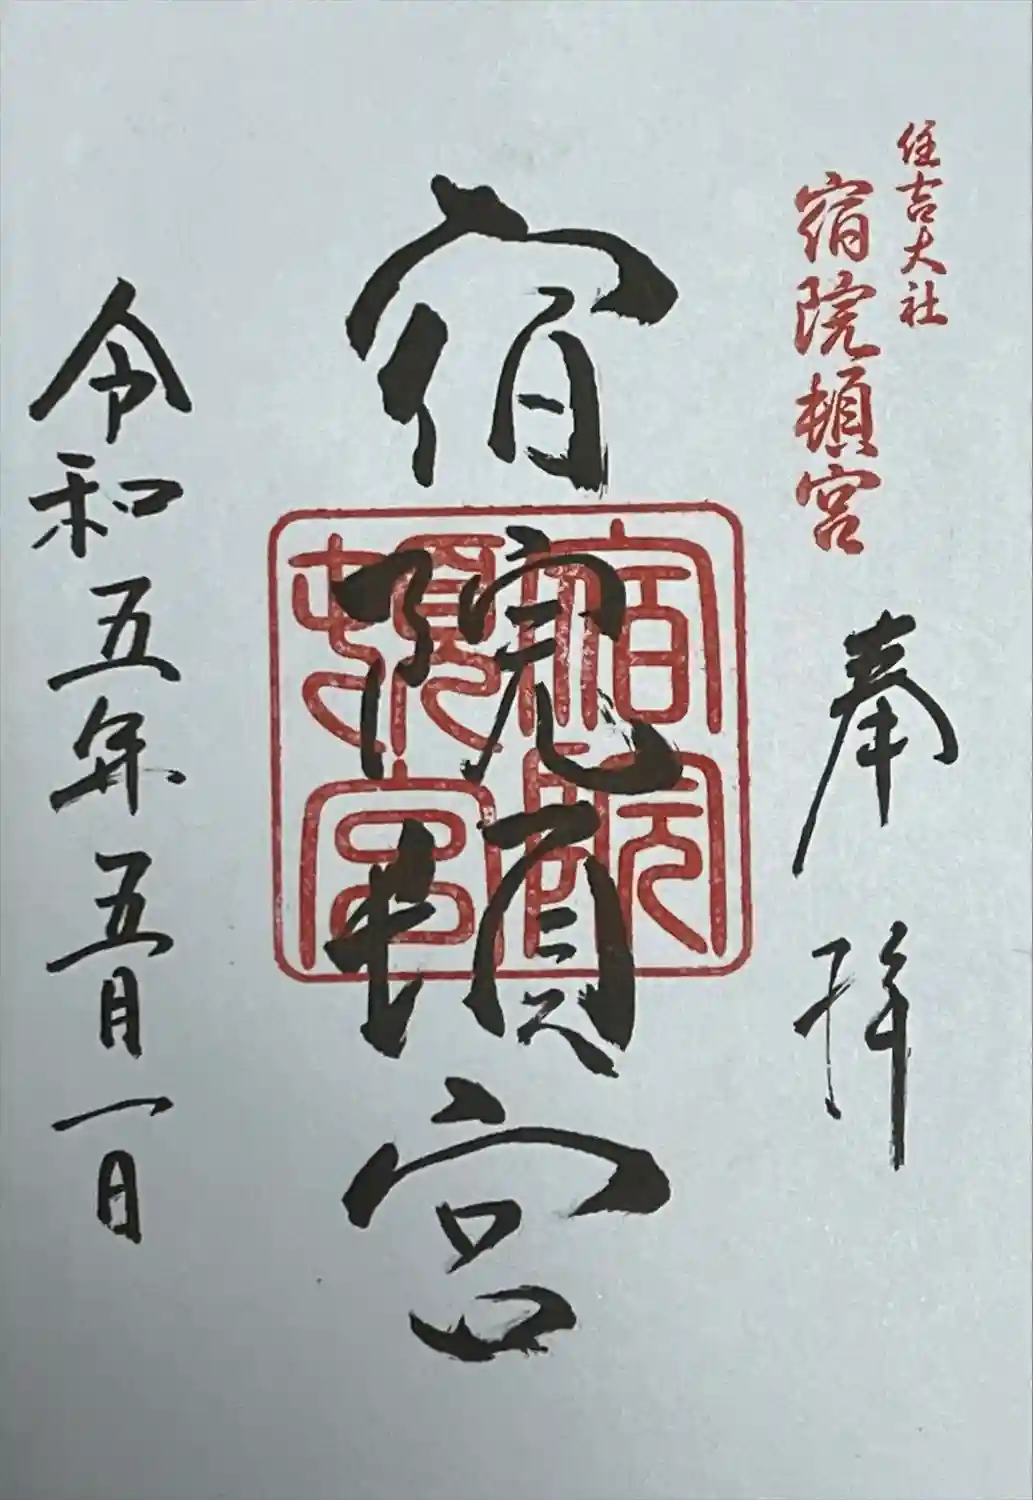 住吉大社
宿院頓宮
奉拝
宿院頓宮
宿院
頓宮
令和五年五月一日